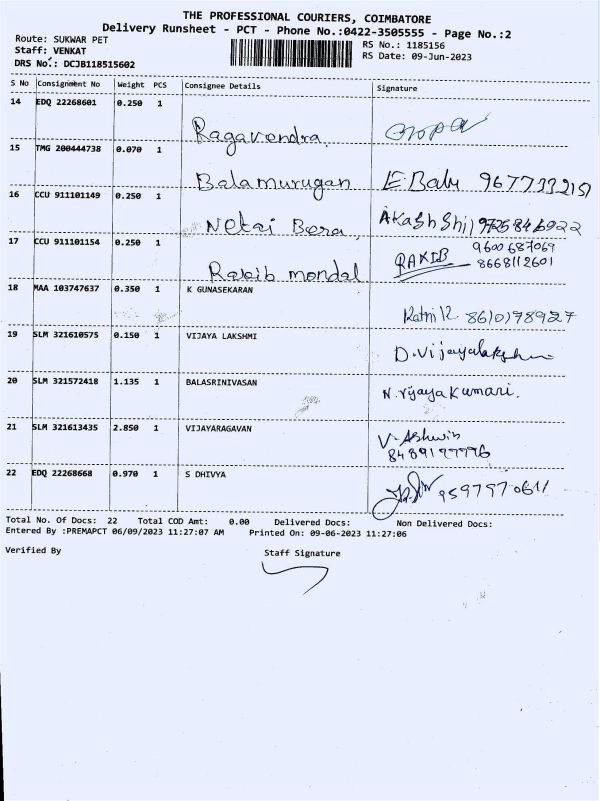 THE PROFESSIONAL COURIERS, COIMBATORE
Delivery Runsheet - PCT - Phone No.:0422-3505555 - Page No.:2
Route: SUKWAR PET
Staff: VENKAT
DRS No.: DCJB118515602
RS No.: 1185156
RS Date: 09-Jun-2023
S No Consignment No Weight PCS Consignee Details Signature
14 EDQ 22268601 0.250 1 Ragavendra
15 TMG 200444738 0.070 1 Balamurugan E. Babu
16 CCU 911101149 0.250 1 Netai Bera, Akash Shil
17 CCU 911101154 0.250 1 Rakib mondal RAKIB 9600687069
8668112601
18 MAA 103747637 0.350 1 K GUNASEKARAN 8610178927
19 SLM 321610575 0.150 1 VIJAYA LAKSHMI D. Vijayalakshmi
20 SLM 321572418 1.135 1 BALASRINIVASAN N. Vijaya Kumari.
21 SLM 321613435 2.850 1 VIJAYARAGAVAN V. Ashwin
22 EDQ 22268668 0.970 1 S DHIVYA
Total No. Of Docs: 22 Total COD Amt: 0.00 Delivered Docs: Non Delivered Docs:
Entered By :PREMAPCT 06/09/2023 11:27:07 AM Printed On: 09-06-2023 11:27:06
Verified By Staff Signature